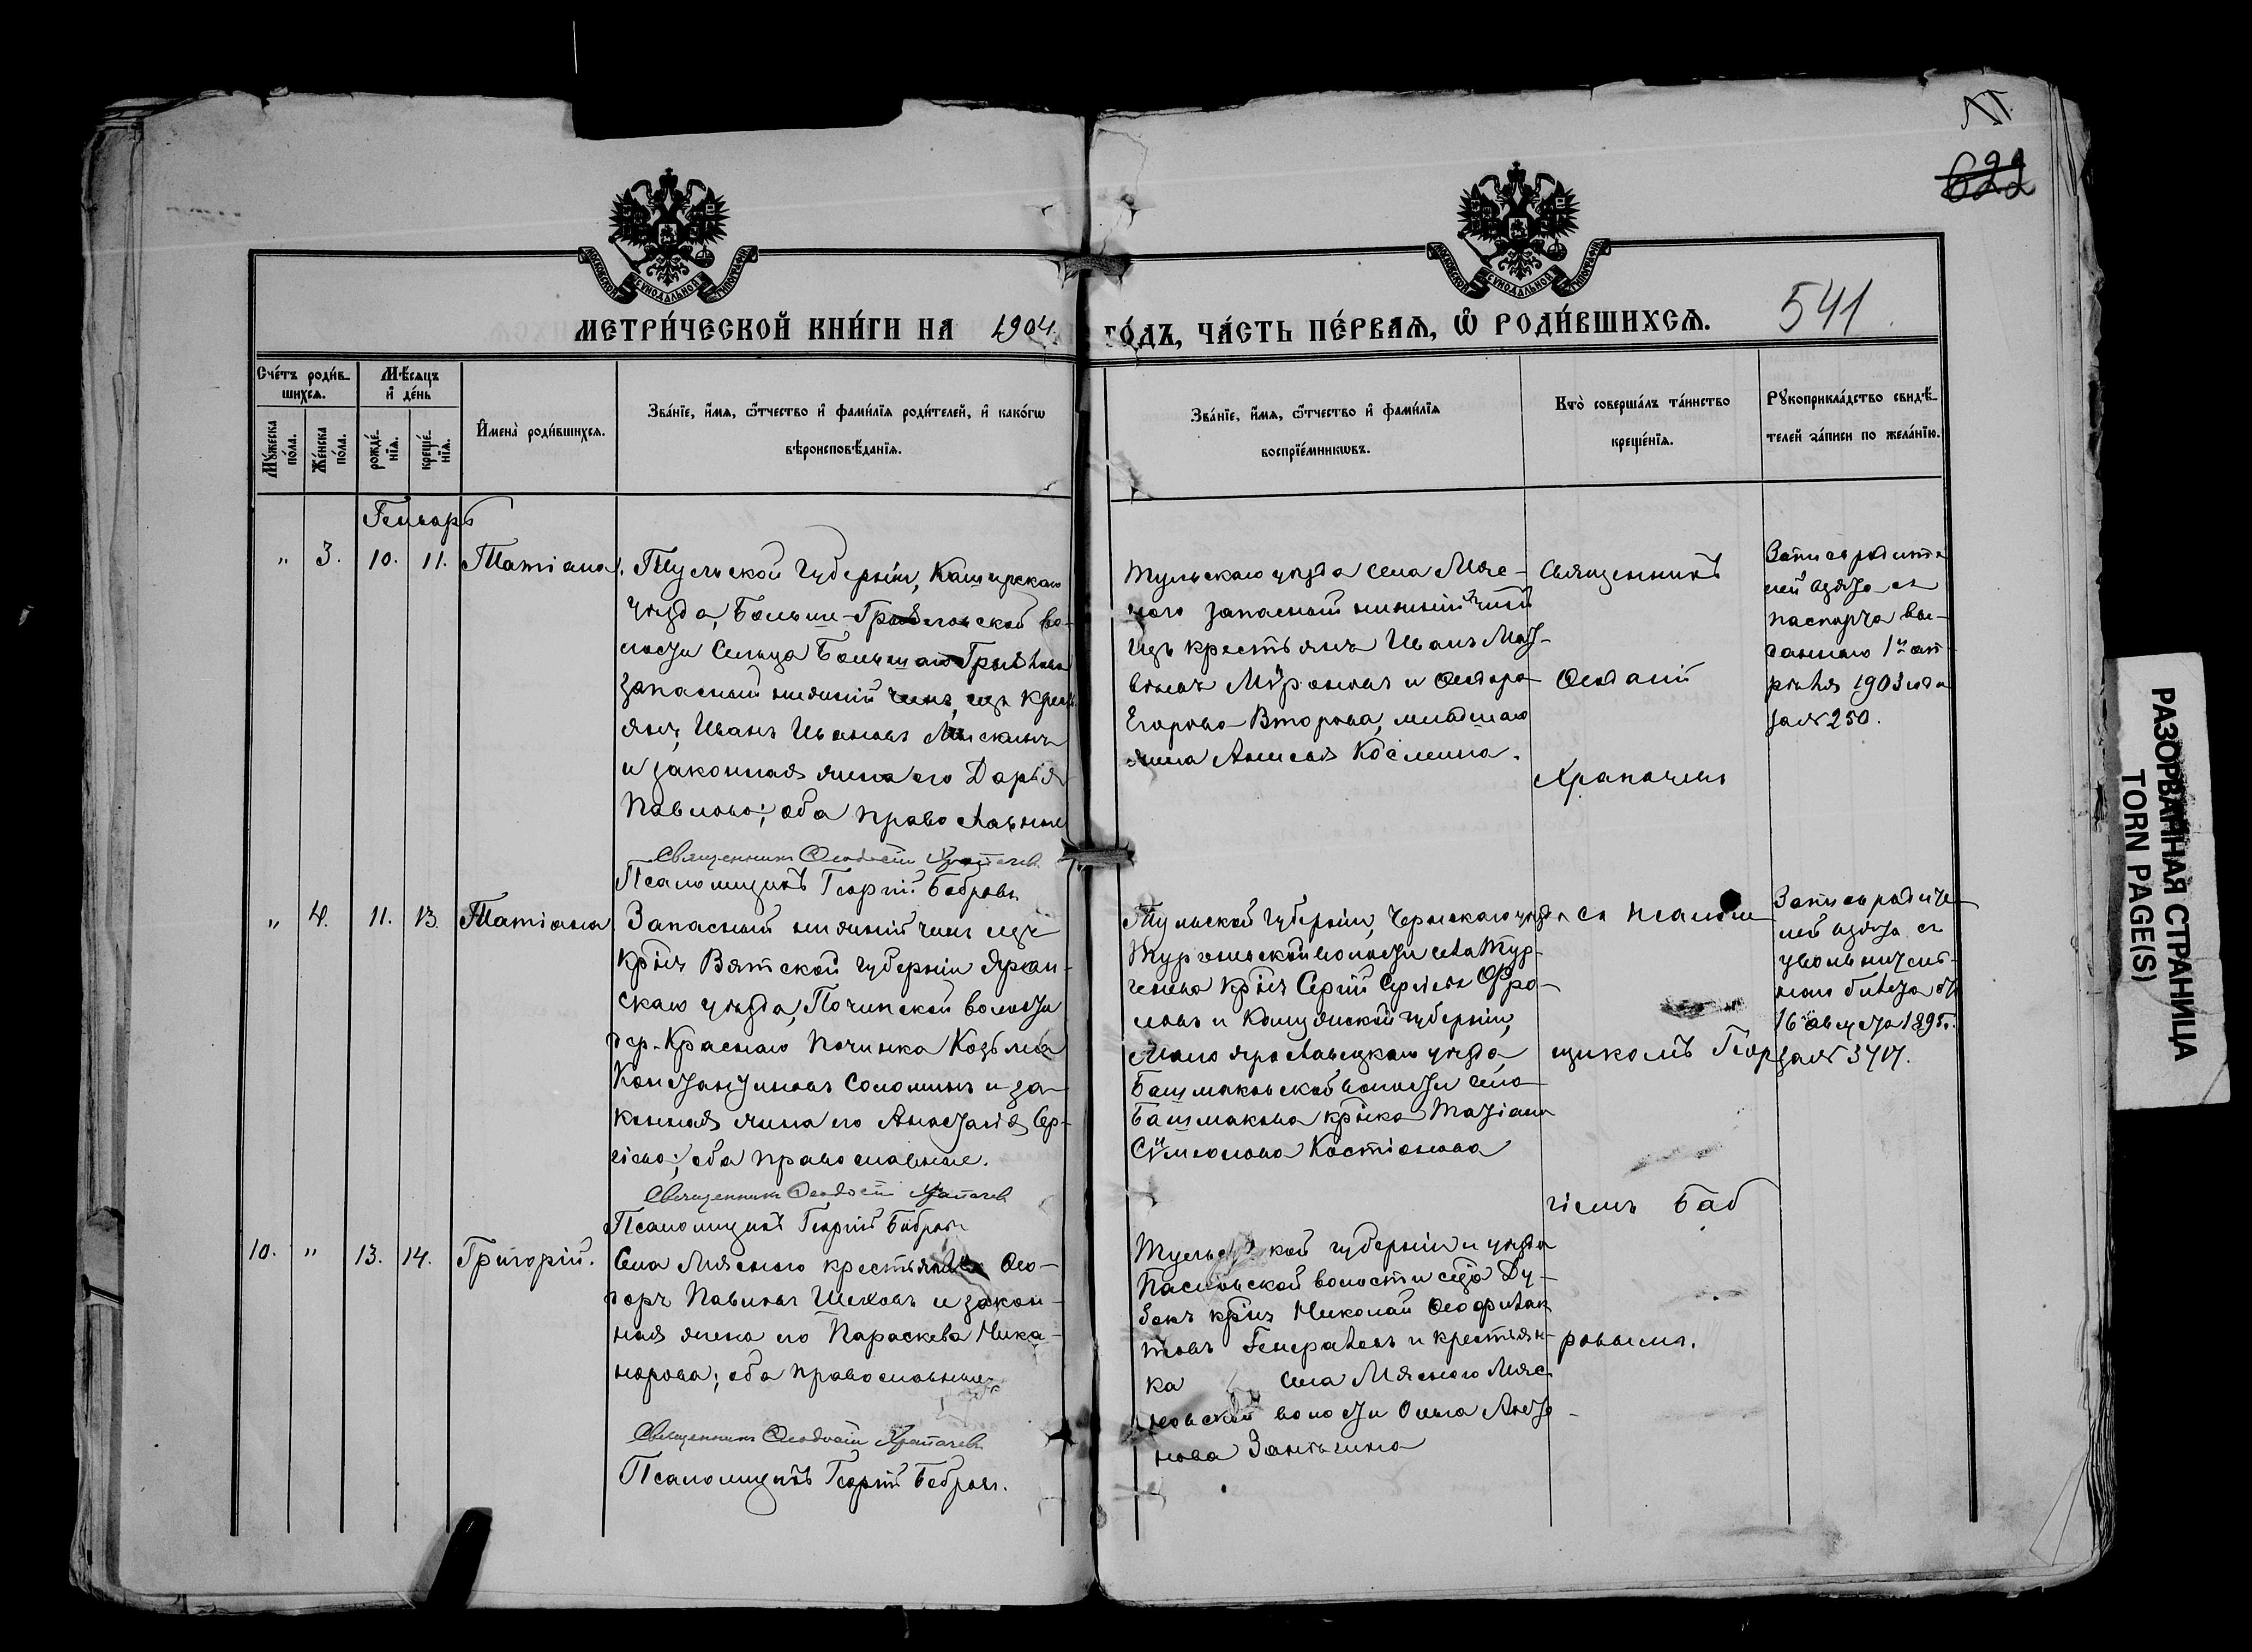 622
541
МОСКОВСКОЙ СѴНОДАЛЬНОЙ ТИПОГРАФІИ
МОСКОВСКОЙ СѴНОДАЛЬНОЙ ТИПОГРАФІИ
МЕТРИ́ЧЕСКОЙ КНИ́ГИ НА 1904. ГО́ДЪ, ЧА́СТЬ ПЕ́РВАѦ, Ѽ РОДИ́ВШИХСѦ.
Сче́тъ роди́в-
шихсѧ.
Мѣ́сѧцъ
и҆ де́нь
Мꙋ́жеска
по́ла.
Же́нска
по́ла.
рожде́-
нїѧ.
креще́-
нїѧ.
И҆мена̀ роди́вшихсѧ.
Зва́нїе, и҆́мѧ, ѻ҆́тчество и҆ фами́лїѧ роди́телей, и҆ како́гѡ
вѣроисповѣ́данїѧ.
Зва́нїе, и҆́мѧ, ѻ҆́тчество и҆ фами́лїѧ
воспрїе́мникѡвъ.
Кто̀ соверша́лъ та́инство
креще́нїѧ.
Рꙋкоприкла́дство свидѣ́-
телей за́писи по жела́нїю.
Генварь
" 3. 10. 11. Татіана.
Тульской губерніи, Каширскаго
уѣзда, Больше-Грызловской во-
лости Сельца Большаго Грызлова
запасный нижній чинъ, изъ крест
янъ, Иванъ Ивановъ
и законная жена его Дарья
Павлова; оба православные
Священникъ Ѳеодосій Храпачевъ
Псаломщикъ Георгій Бобровъ
Тульскаго уѣзда села Мяс-
ного запасный нижній чинъ
изъ крестьянъ Иванъ Мат-
вѣевъ Мѵроновъ и Ѳедора
Егорова Второва, младшаго
жена Анисья Косьмина.
Священникъ
Ѳеодосій
Храпачевъ
Запись родите
лей взята съ
паспорта вы-
даннаго 1го ап-
рѣля 1903 года
за № 250.
" 4. 11. 13. Татіана
Запасный нижній чинъ изъ
кр̃нъ Вятской губерніи Яран-
скаго уѣзда, Починской волости
дер. Краснаго Починка Козьма
Константиновъ Соломинъ и за-
конная жена его Анастасія Сер-
гіева; оба православные.
Священникъ Ѳеодосій Храпачевъ
Псаломщикъ Георгій Бобровъ
Тульской губерніи, Чернскаго уѣзда
Тургеневской волости села Тур-
генева кр̃нъ Сергій Сергѣевъ Фро-
ловъ и Калужской губерніи,
Малоярославецкаго уѣзда,
Башмаковской волости села
Башмакова кр̃нка Татіана
Сѵмеонова Костіонова
съ псалом
щикомъ Геор
гіемъ Боб
ровымъ.
Запись родите
лей взята съ
увольнитель-
наго билета отъ
16 августа 1895 г.
за № 3717.
10. " 13. 14. Григорій.
Села Мяснаго крестьянинъ Ѳео-
доръ Павловъ Шеховъ и закон-
ная жена его Параскева Ника-
норова; оба православные.
Священникъ Ѳеодосій Храпачевъ
Псаломщикъ Георгій Бобровъ.
Тульской губерніи и уѣзда
Пасловской волости сельца Ду-
бокъ кр̃нъ Николай Ѳеофилак
товъ Генераловъ и крестьян-
ка села Мяснаго Мяс
новской волости Ольга Анто-
нова Занѣгина
РАЗОРВАННАЯ СТРАНИЦА
TORN PAGE(S)